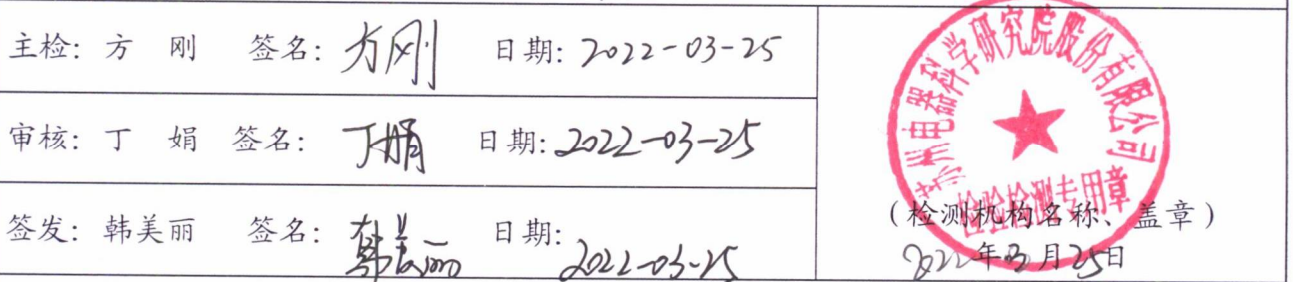 主检: 方 刚 签名: 方刚 日期: 2022-03-25
审核: 丁 娟 签名: 丁娟 日期: 2022-03-25
签发: 韩美丽 签名: 韩美丽 日期: 2022-03-25
苏州电器科学研究院股份有限公司
检验检测专用章
(检测机构名称、盖章)
2022年03月25日